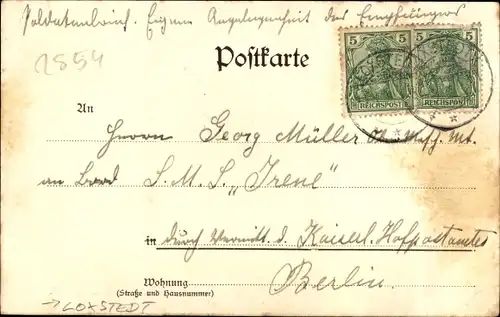 Soldatenbrief. Eigene Angelegenheit des Empfängers
2854
Postkarte
5 5 5 5
REICHSPOST REICHSPOST
An
Herrn Georg Müller
an Bord S.M.S. „Irene"
in durch Vermittl. d. Kaiserl. Hofpostamtes
Berlin.
Wohnung
(Straße und Hausnummer)
→ LOXSTEDT